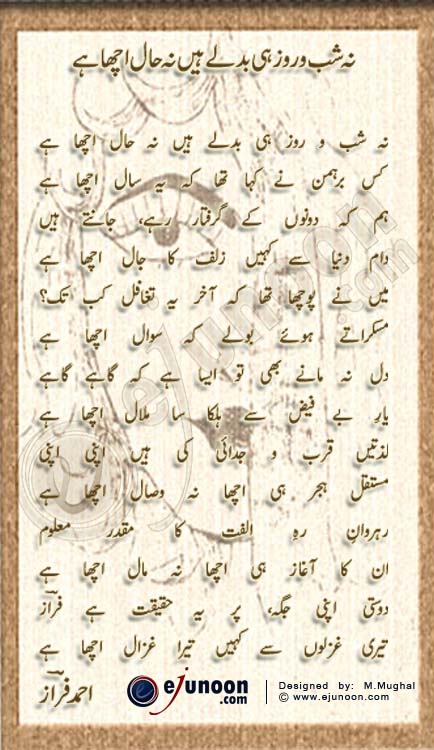 نہ شب و روز ہی بدلے ہیں نہ حال اچھا ہے
نہ شب و روز ہی بدلے ہیں نہ حال اچھا ہے
کس برہمن نے کہا تھا کہ یہ سال اچھا ہے
ہم کہ دونوں کے گرفتار رہے، جانتے ہیں
دام دنیا سے کہیں زلف کا جال اچھا ہے
میں نے پوچھا تھا کہ آخر یہ تغافل کب تک؟
مسکراتے ہوئے بولے کہ سوال اچھا ہے
دل نہ مانے بھی تو ایسا ہے کہ گاہے گاہے
یارِ بے فیض سے ہلکا سا ملال اچھا ہے
لذتیں قرب و جدائی کی ہیں اپنی اپنی
مستقل ہجر ہی اچھا نہ وصال اچھا ہے
رہروانِ رہِ الفت کا مقدر معلوم
ان کا آغاز ہی اچھا نہ مال اچھا ہے
دوستی اپنی جگہ، پر یہ حقیقت ہے فرازؔ
تیری غزلوں سے کہیں تیرا غزال اچھا ہے
احمد فرازؔ
ejunoon.com
Designed by: M.Mughal
© www.ejunoon.com
ejunoon.com